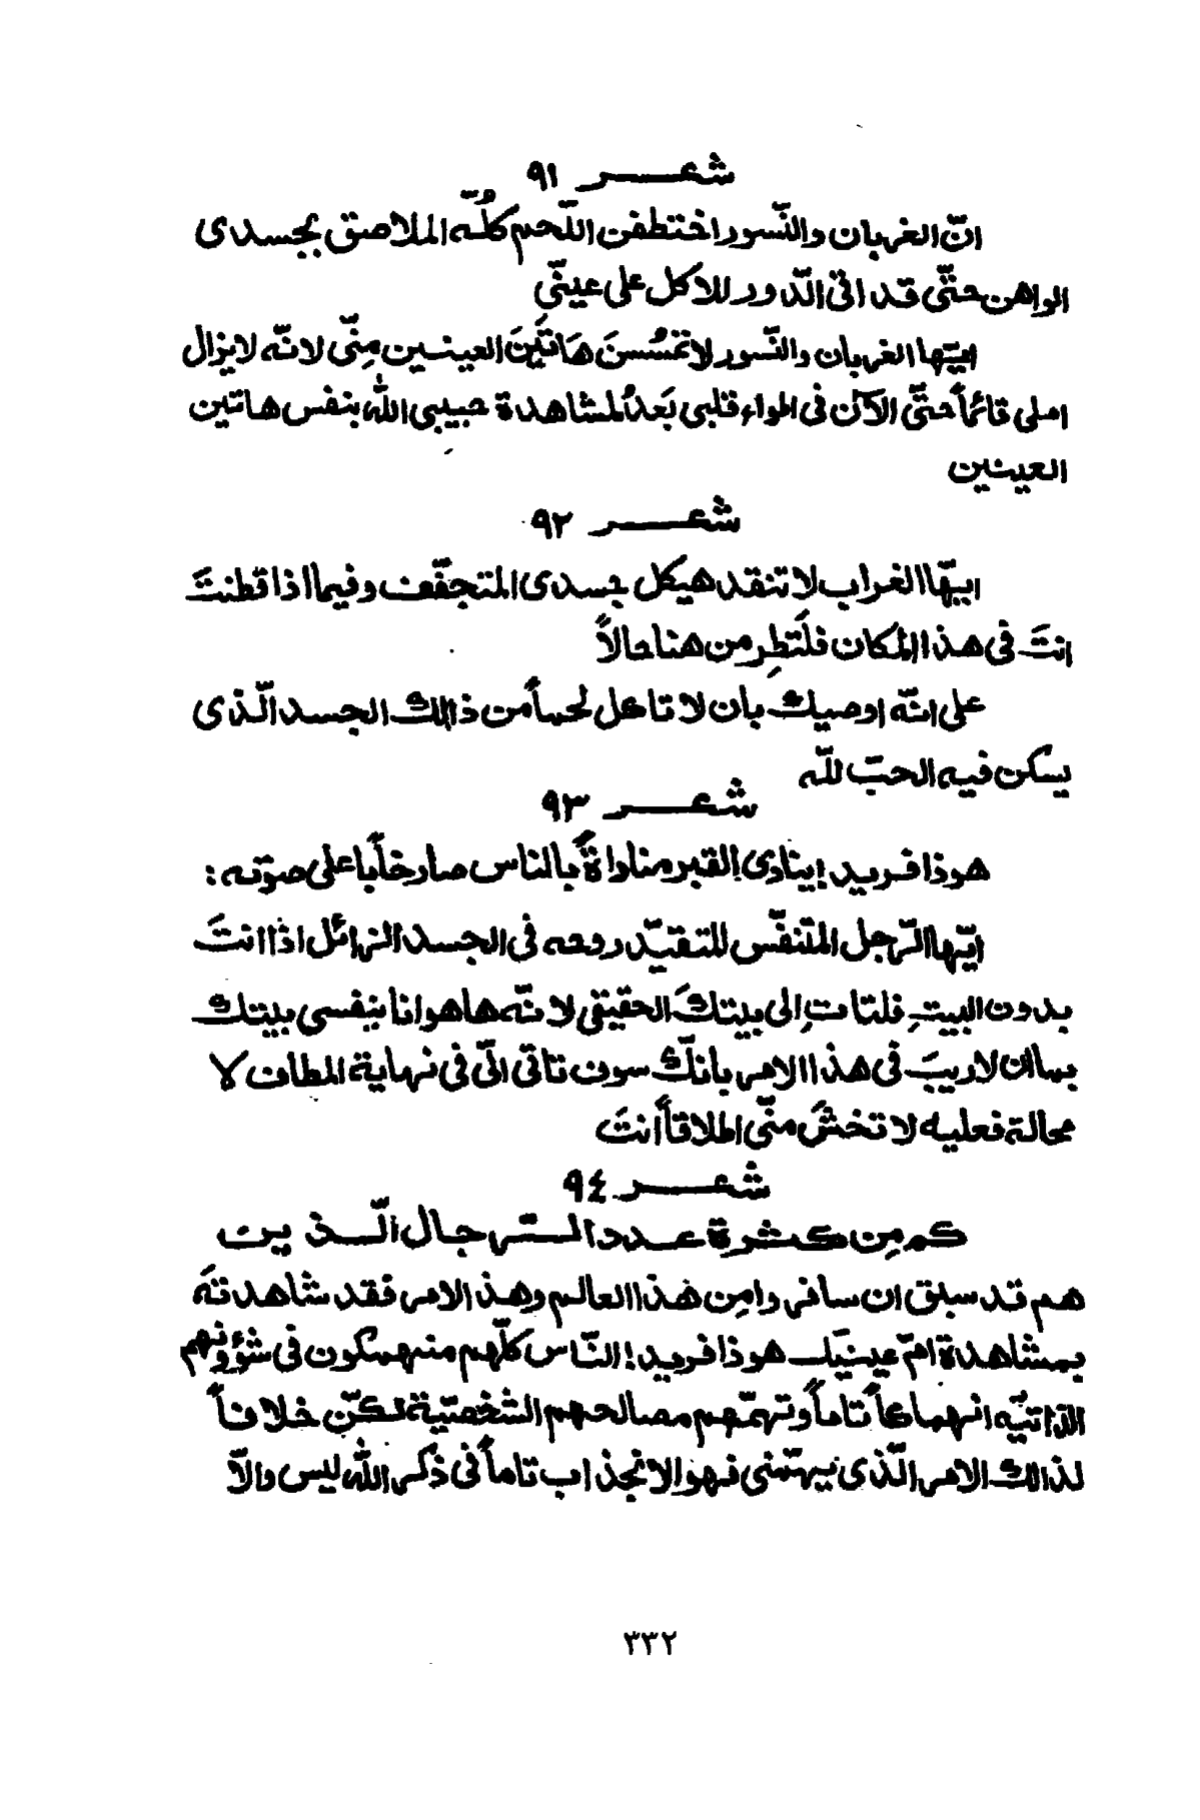 شعر ٩١
انّ الغربان والنّسور اختطفن اللّحم كلُّه الملاصق بجسدى
الواهن حتّى قد اتى الدّور للاكل على عينّي
ايتها الغربان والنّسور لا تمسُسنَ هَاتَينَ العينين مِنّى لانّه لا يزال
املى قائماً حتّى الآن فى اطواء قلبى بَعدُ لمشاهدة حبيبى اللّه بنفس هاتين
العينين
شعر ٩٢
ايهّا الغراب لا تنقد هيكل جسدى المتجفّف وفيما اذا قطنتَ
انتَ فى هذا المكان فلَتطِر من هنا حالاً
على انّه اوصيك بان لا تاكل لحماً من ذالك الجسد الّذى
يسكن فيه الحبّ للّه
شعر ٩٣
هوذا فريد! ينادى القبر مناداةً بالناس صارخاً باعلى صوته :
ايّها الرّجل المتنفّس للتقيّد روحه فى الجسد الزائل اذا انتَ
بدون البيتِ فلتاتِ الى بيتكَ الحقيقى لانّه ها هو انا بنفسى بيتك
بما ان لا ريبَ فى هذا الامر بانكّ سوف تاتى الىّ فى نهاية المطاف لا
محالة فعليه لا تخشَ منّى اطلاقاً انتَ
شعر ٩٤
كم مِن كثرة عدد الرّجال الّذين
هم قد سبق ان سافروا مِن هذا العالم وهذا الامر فقد شاهدتَه
بمشاهدة امّ عينيك هوذا فريد! النّاس كلّهم منهمكون فى شؤونهم
الذاتيّه انهماكاً تاماً وتهمّهم مصالحهم الشخصّية لكنّ خلافاً
لذالك الامر الّذى يهمّنى فهو الانجذاب تاماً فى ذكر اللّه ليس والاّ
٣٣٢